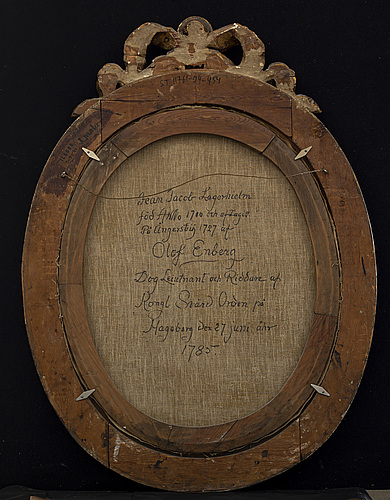 Jean Jacob Lagerholm
föd Anno 1710 och aftaget
På Ungersby 1727 af
Olof Enberg
Dog Lieutnant och Riddare af
Kongl Svärd Orden på
Hageberg den 27 juni åhr
1785